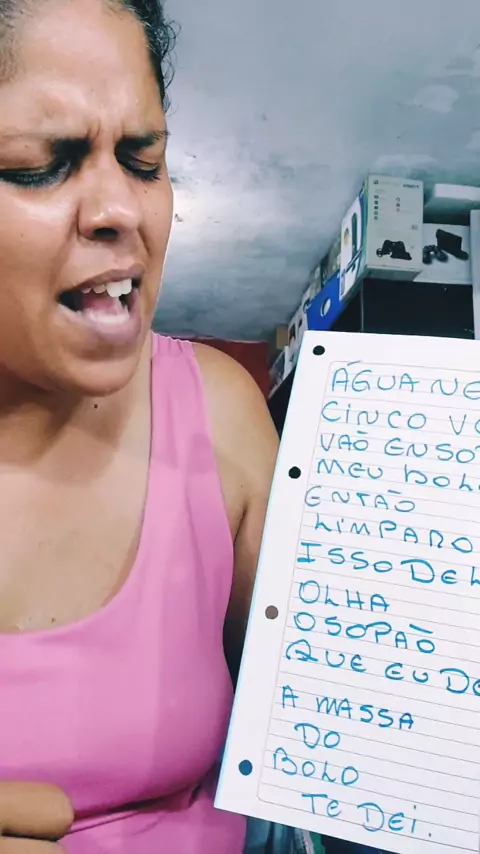 ÁGUA NE
CINCO VO
VAÕ ENSO
MEU BOL
ENTÃO
LIMPARO
ISSO DEL
OLHA
O SOPAÕ
QUE EU DE
A MASSA
DO
BOLO
TE DEI.